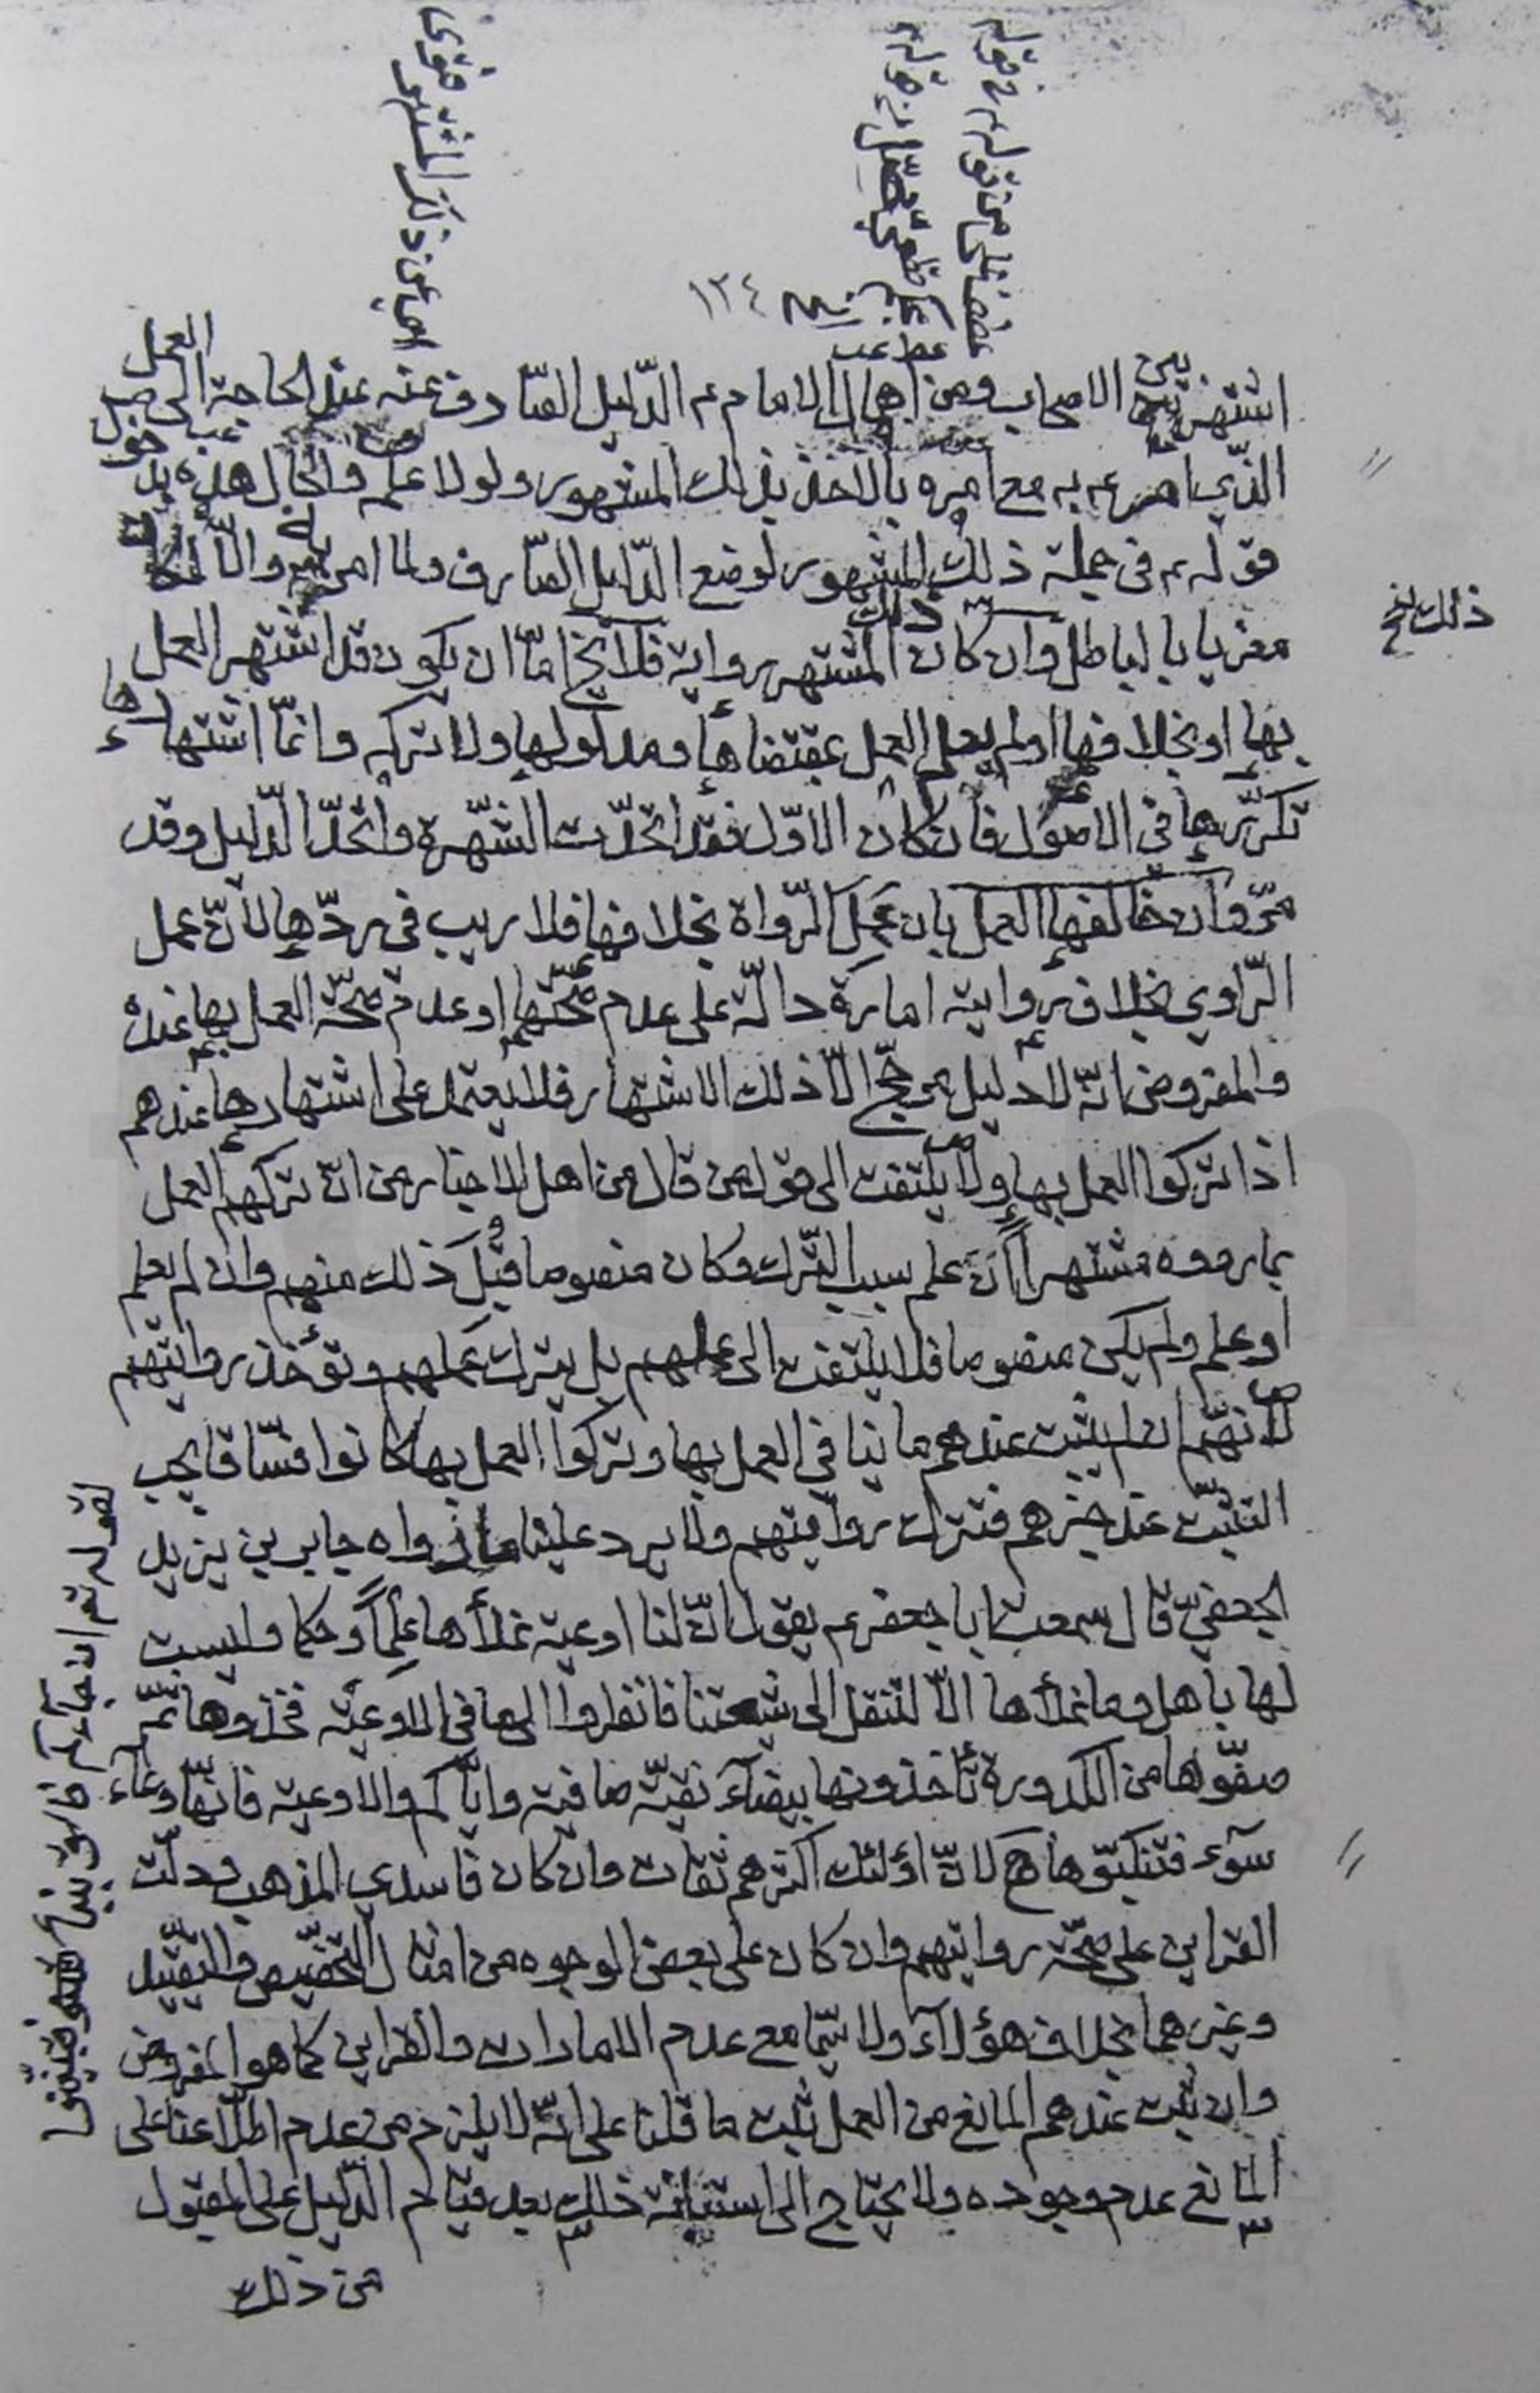 ١٢٤
اشتهر بين الاصحاب ومن اهمال الامام ع الدليل الصارف عنه عند الحاجة الى العمل
الذي امر ع به مع امره بالاخذ بذلك المشهور ولولا علم والحال هذه
قوله ع في جملة ذلك المشهور لوضع الدليل الصارف ولما امر به والا لكان
مغريا بالباطل وان كان ذلك المشتهر رواية فلا يخ امّا ان يكون قد اشتهر العمل
بها او بخلافها او لم يعلم العمل بمقتضاها ومدلولها ولا تركه وانّما اشتهارها
تكرّرها في الاصول فان كان الاوّل فقد اتحدت الشهرة واتحد الدليل وقد
مرّ وان خالفها العمل بان عمل الرواة بخلافها فلا ريب في ردّها لانّ عمل
الراوي بخلاف روايته امارة دالّة على عدم صحّتها او عدم صحّة العمل بها عنده
والمفروض انّه لا دليل مرجّح الّا ذلك الاشتهار فلا يعتمد على اشتهارها عندهم
اذا تركوا العمل بها ولا يلتفت الى قول من قال من اهل الاخبار من انّ تركهم العمل
بما رووه مشتهراً ان علم سبب الترك وكان منصوصا قُبِلَ ذلك منهم وان لم يعلم
او علم ولم يكن منصوصا فلا يلتفت الى عملهم بل يترك عملهم وتؤخذ روايتهم
لانّهم ان لم يثبت عندهم ما ينافي العمل بها وتركوا العمل بها كانوا فسّاقا يجب
التثبّت عند خبرهم فتترك روايتهم ولا يرد علينا ما رواه جابر بن يزيد
الجعفي قال سمعت ابا جعفر ع يقول انّ لنا اوعية نملأها علماً وحكما وليست
لها باهل وما نملأها الّا لتنقل الى شيعتنا فانظروا الى ما في الاوعية فخذوها ثمّ
صفّوها من الكدورة تأخذونها بيضآء نقيّة صافية وايّاكم والاوعية فانّها وعآء
سوء فتنكّبوها لانّ اولئك اكثرهم ثقات وان كان فاسدي المذهب ودلّت
القراين على صحّة روايتهم وان كان على بعض الوجوه من امثال التخصيص والتقييد
وغيرهما بخلاف هؤلآء ولا سيّما مع عدم الامارات والقراين كما هو المفروض
وان ثبت عندهم المانع من العمل ثبت ما قلنا على انّه لا يلزم من عدم اطلاعنا على
المانع عدم وجوده ولا يحتاج الى استنابة ذلك بعد قيام الدليل على المقبول
من ذلك
ذلك نخ
لقوله تع ان جآءكم فاسق بنبأ فتبيّنوا